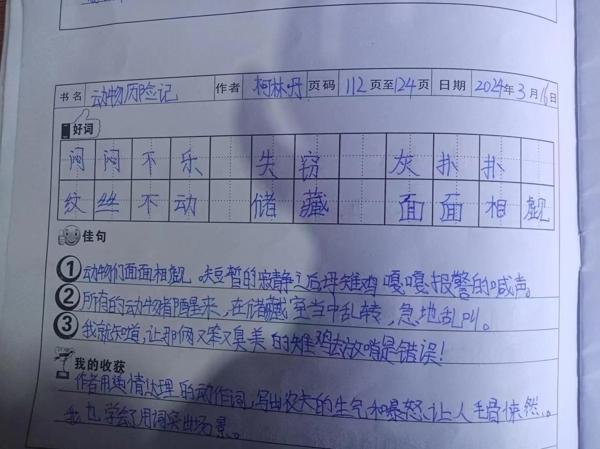 书名 动物历险记 作者 柯林·丹 页码 112页至124页 日期 2024年3月16日
好词
闷闷不乐 失窃 灰扑扑
纹丝不动 储藏 面面相觑
佳句
1 动物们面面相觑。短暂的寂静之后,母雉鸡嘎嘎报警的喊声。
2 所有的动物都醒来,在储藏室当中乱转,急地乱叫。
3 我就知道,让那俩又笨又臭美的雉鸡去放哨是错误!
我的收获
作者用 情达理的动作词,写出农夫的生气和暴怒,让人毛骨悚然。
我也学会了用词突出场景。